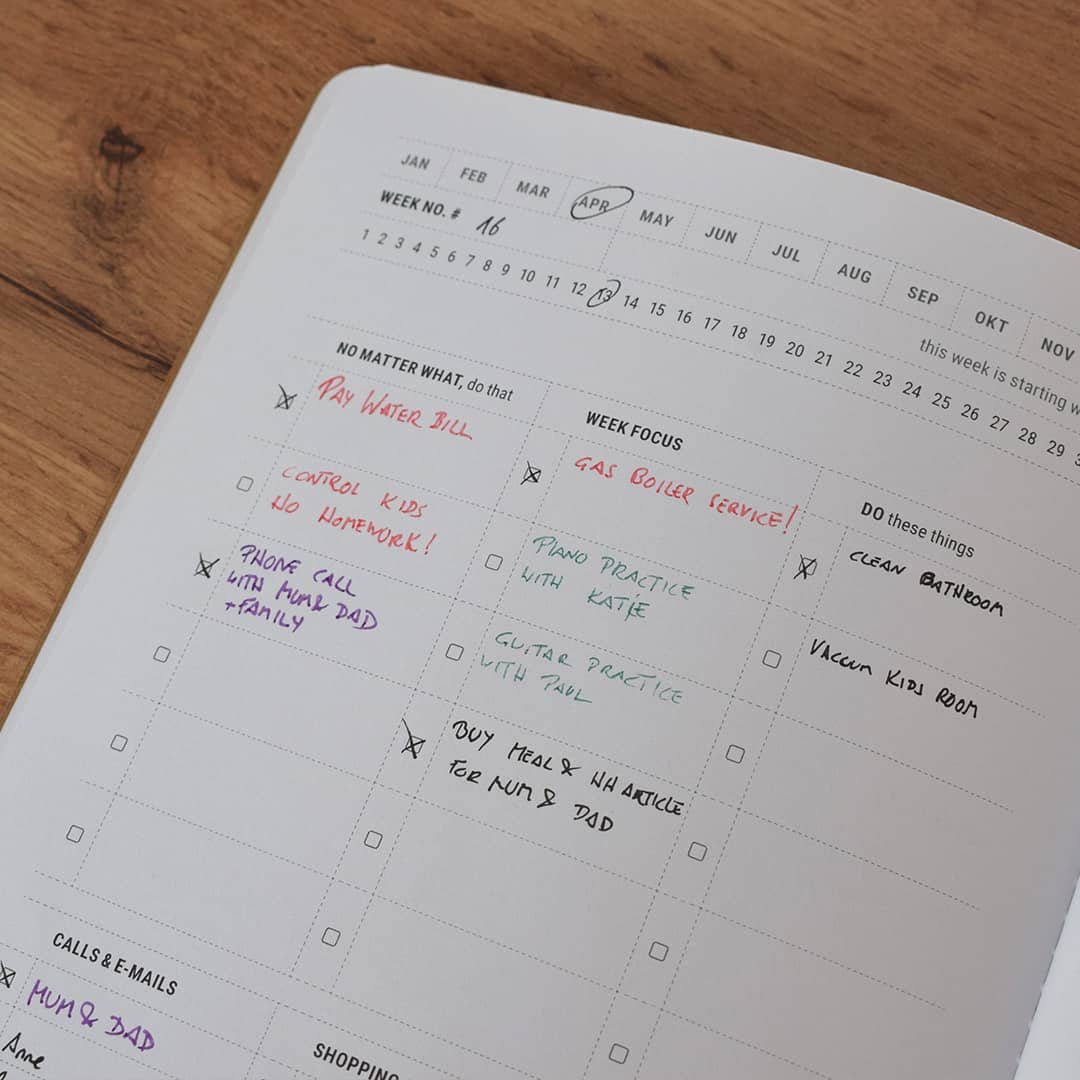 JAN FEB MAR APR MAY JUN JUL AUG SEP OKT NOV
WEEK NO. # 16
1 2 3 4 5 6 7 8 9 10 11 12 13 14 15 16 17 18 19 20 21 22 23 24 25 26 27 28 29
this week is starting
NO MATTER WHAT, do that
PAY WATER BILL
CONTROL KIDS
NO HOMEWORK!
PHONE CALL
WITH MUM & DAD
+ FAMILY
WEEK FOCUS
GAS BOILER SERVICE!
PIANO PRACTICE
WITH KATJE
GUITAR PRACTICE
WITH PAUL
BUY MEAL & WH ARTICLE
FOR MUM & DAD
DO these things
CLEAN BATHROOM
VACUUM KIDS ROOM
CALLS & E-MAILS
MUM & DAD
Anne
SHOPPING